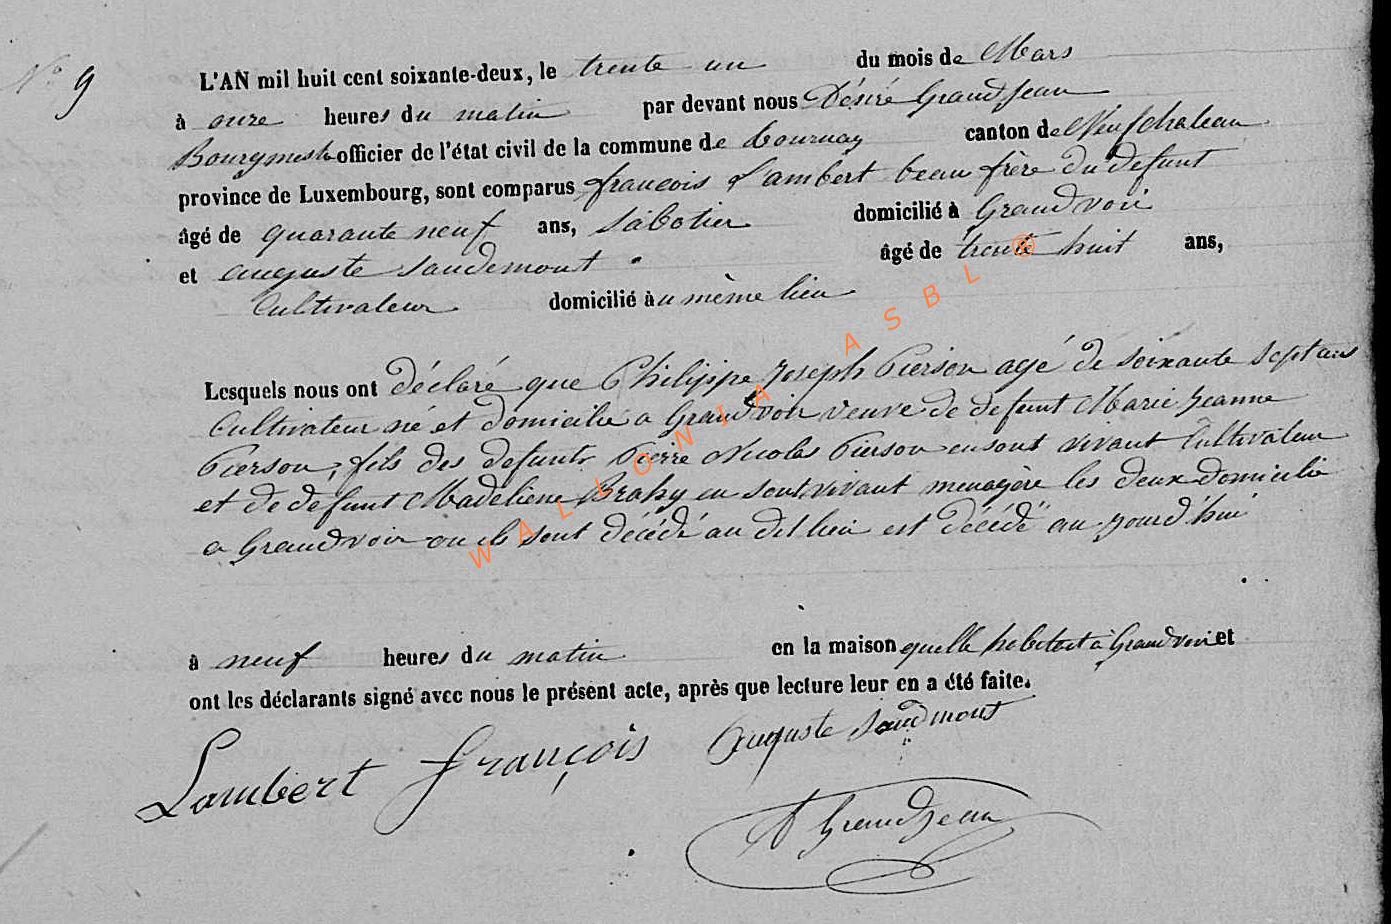 N° 9
L'AN mil huit cent soixante-deux, le trente un du mois de Mars
à onze heures du matin par devant nous Désiré Grandjean
Bourgmestre officier de l'état civil de la commune de Tournay canton de Neufchateau
province de Luxembourg, sont comparus francois Lambert beau frère du defunt
âgé de quarante neuf ans, Sabotier domicilié à Grandvoir
et auguste Saudemont âgé de trente huit ans,
Cultivateur domicilié au même lieu
Lesquels nous ont déclaré que Philippe Joseph Pierson agé de soixante sept ans
Cultivateur né et domicilie a Grandvoir veuve de defunt Marie Jeanne
Pierson, fils des defunts Pierre Nicolas Pierson en sont vivant Cultivateur
et de defunt Madeliene Brahy en sont vivant menagère les deux domicilié
a Grandvoir ou ils sont décédé au dit lieu est décédé au jourd'hui
à neuf heures du matin en la maison quelle habitait à Grandvoir et
ont les déclarants signé avec nous le présent acte, après que lecture leur en a été faite.
Lambert françois Auguste Saudmont
D Grandjean
WALLONIA ASBL ®